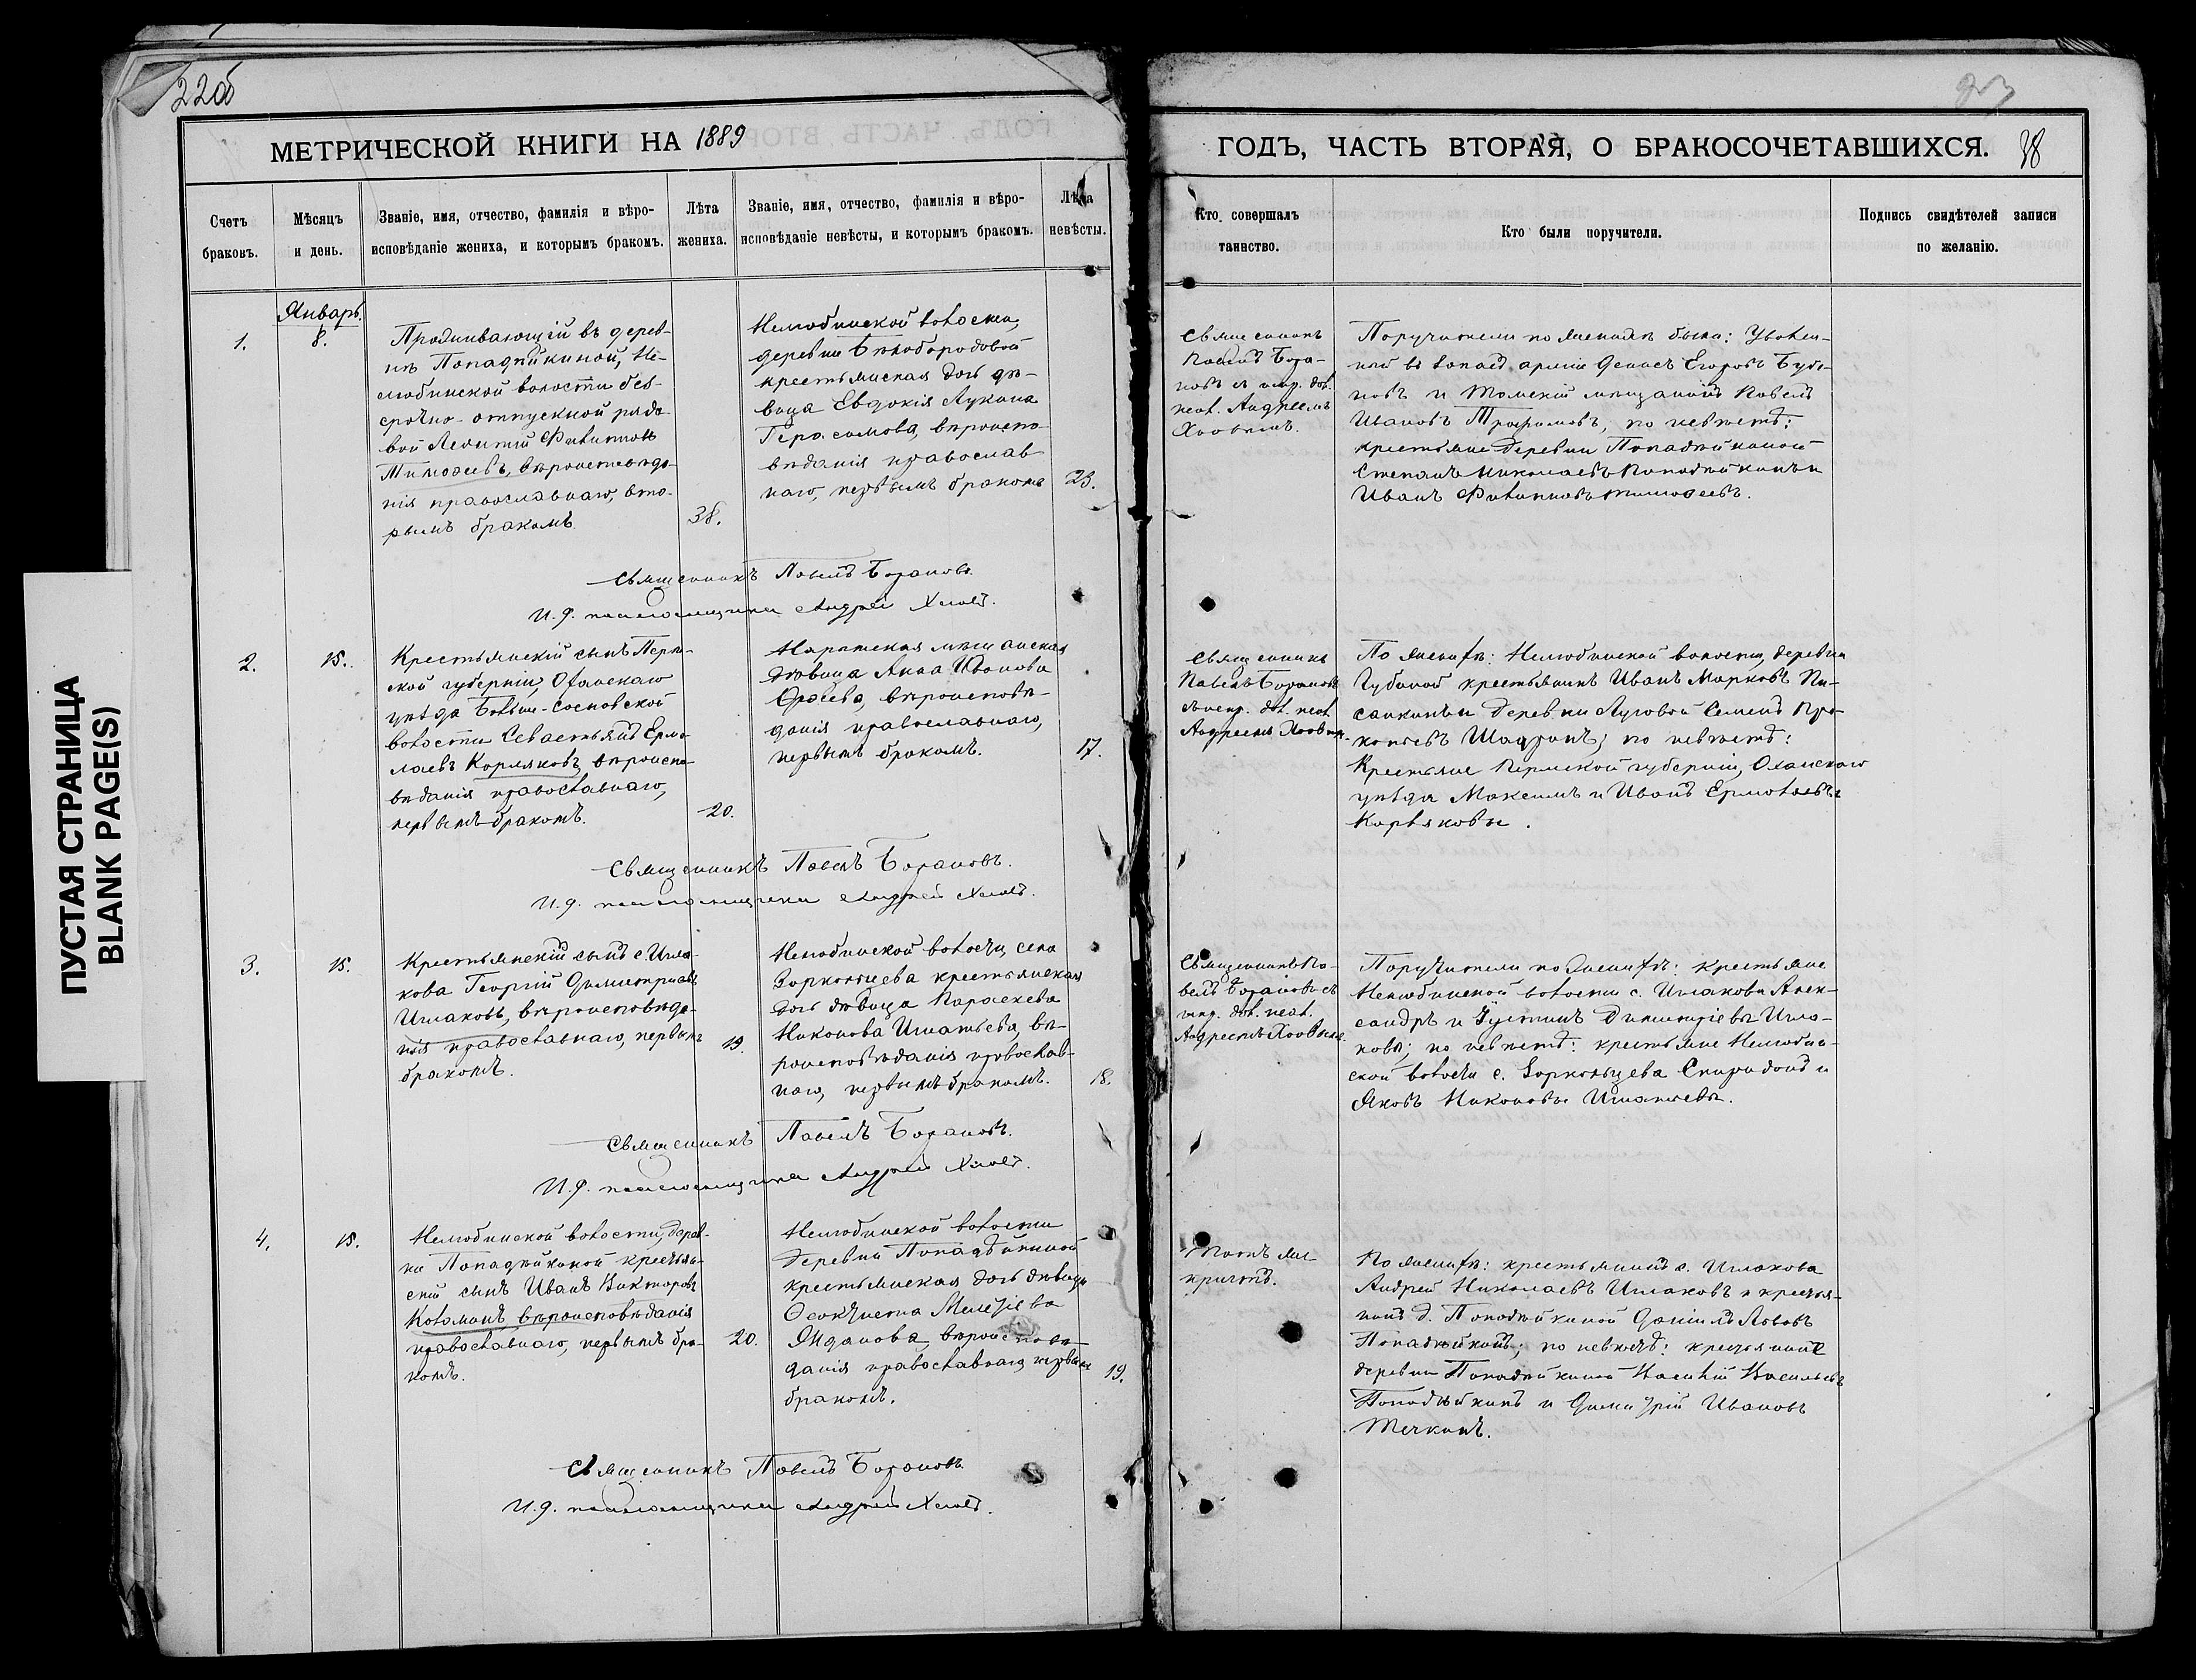 22об
23
МЕТРИЧЕСКОЙ КНИГИ НА 1889
ГОДЪ, ЧАСТЬ ВТОРАЯ, О БРАКОСОЧЕТАВШИХСЯ. 38
Счетъ
браковъ.
Мѣсяцъ
и день.
Званіе, имя, отчество, фамилія и вѣро-
исповѣданіе жениха, и которымъ бракомъ.
Лѣта
жениха.
Званіе, имя, отчество, фамилія и вѣро-
исповѣданіе невѣсты, и которымъ бракомъ.
Лѣта
невѣсты.
Кто совершалъ
таинство.
Кто были поручители.
Подпись свидѣтелей записи
по желанію.
1.
Январь.
8.
Проживающій въ дерев-
нѣ Попадѣйкиной, Не-
любинской волости без-
срочно-отпускной рядо-
вой Леонтій Филиппов
Тимоѳеевъ, вѣроисповѣда-
нія православнаго, вто-
рымъ бракомъ
38.
Нелюбинской волости,
деревни Бѣлобородовой
крестьянская дочь дѣ-
вица Евдокія Лукина
Герасимова, вѣроиспо-
вѣданія православ-
наго, первымъ бракомъ
23.
Священникъ
Павелъ Бора-
новъ съ испр. дол.
псал. Андреемъ
Хвовымъ.
Поручители по женихѣ были: Уволен-
ный въ запасъ арміи Денисъ Егоровъ Буб-
новъ и Томскій мѣщанинъ Павелъ
Ивановъ Трофимовъ, по невѣстѣ:
крестьяне деревни Попадѣйкиной
Степанъ Николаевъ Попадѣйкинъ и
Иванъ Филипповъ Тимоѳеевъ.
Священникъ Павелъ Борановъ.
И. д. псаломщика Андрей
2.
15.
Крестьянскій сынъ Перм-
ской губерніи, Оханскаго
уѣзда Больше-Сосновской
волости Севастьянъ Ермо-
лаевъ Корляковъ, вѣроиспо-
вѣданія православнаго,
первымъ бракомъ.
20.
Нарымская мѣщанская
дѣвица Анна Иванова
вѣроисповѣ-
данія православнаго,
первымъ бракомъ.
17.
Священникъ
Павелъ Борановъ
съ испр. дол. псал.
Андреемъ
По женихѣ: Нелюбинской волости, деревни
Губиной крестьянинъ Иванъ Марковъ Пи-
санкинъ и деревни Луговой Семенъ Про-
копьевъ Шадринъ; по невѣстѣ:
Крестьяне Пермской губерніи, Оханскаго
уѣзда Максимъ и Иванъ Ермолаевы
Корляковы.
Священникъ Павелъ Борановъ.
И. д. псаломщика Андрей
3.
15.
Крестьянскій сынъ с. Ишта-
кова Георгій Димитріевъ
Иштаковъ, вѣроисповѣда-
нія православнаго, первымъ
бракомъ.
19.
Нелюбинской волости, села
Зоркольцева крестьянская
дочь дѣвица Параскева
Никонова Игнатьева, вѣ-
роисповѣданія православ-
наго, первымъ бракомъ.
18.
Священникъ Па-
велъ Борановъ съ
испр. дол. псал.
Андреемъ
Поручители по женихѣ: крестьяне
Нелюбинской волости с. Иштакова Алек-
сандръ и Іустинъ Димитріевы Ишта-
ковы; по невѣстѣ: крестьяне Нелюбин-
ской волости с. Зоркольцева Спиридонъ и
Яковъ Никоновы Игнатьевы.
Священникъ Павелъ Борановъ.
И. д. псаломщика Андрей
4.
15.
Нелюбинской волости, дерев-
ни Попадѣйкиной крестьян-
скій сынъ Иванъ Викторовъ
Коломинъ, вѣроисповѣданія
православнаго, первымъ бра-
комъ.
20.
Нелюбинской волости
деревни Попадѣйкиной
крестьянская дочь дѣвица
Ѳеоктиста
Жданова, вѣроисповѣ-
данія православнаго, первымъ
бракомъ.
19.
Тотъ же
причтъ.
По женихѣ: крестьянинъ с. Иштакова
Андрей Николаевъ Иштаковъ и крестья-
нинъ д. Попадѣйкиной Даніилъ Львовъ
Попадѣйкинъ; по невѣстѣ: крестьяне
деревни Попадѣйкиной Василій Васильевъ
Попадѣйкинъ и Димитрій Ивановъ
Священникъ Павелъ Борановъ.
И. д. псаломщика Андрей
ПУСТАЯ СТРАНИЦА
BLANK PAGE(S)